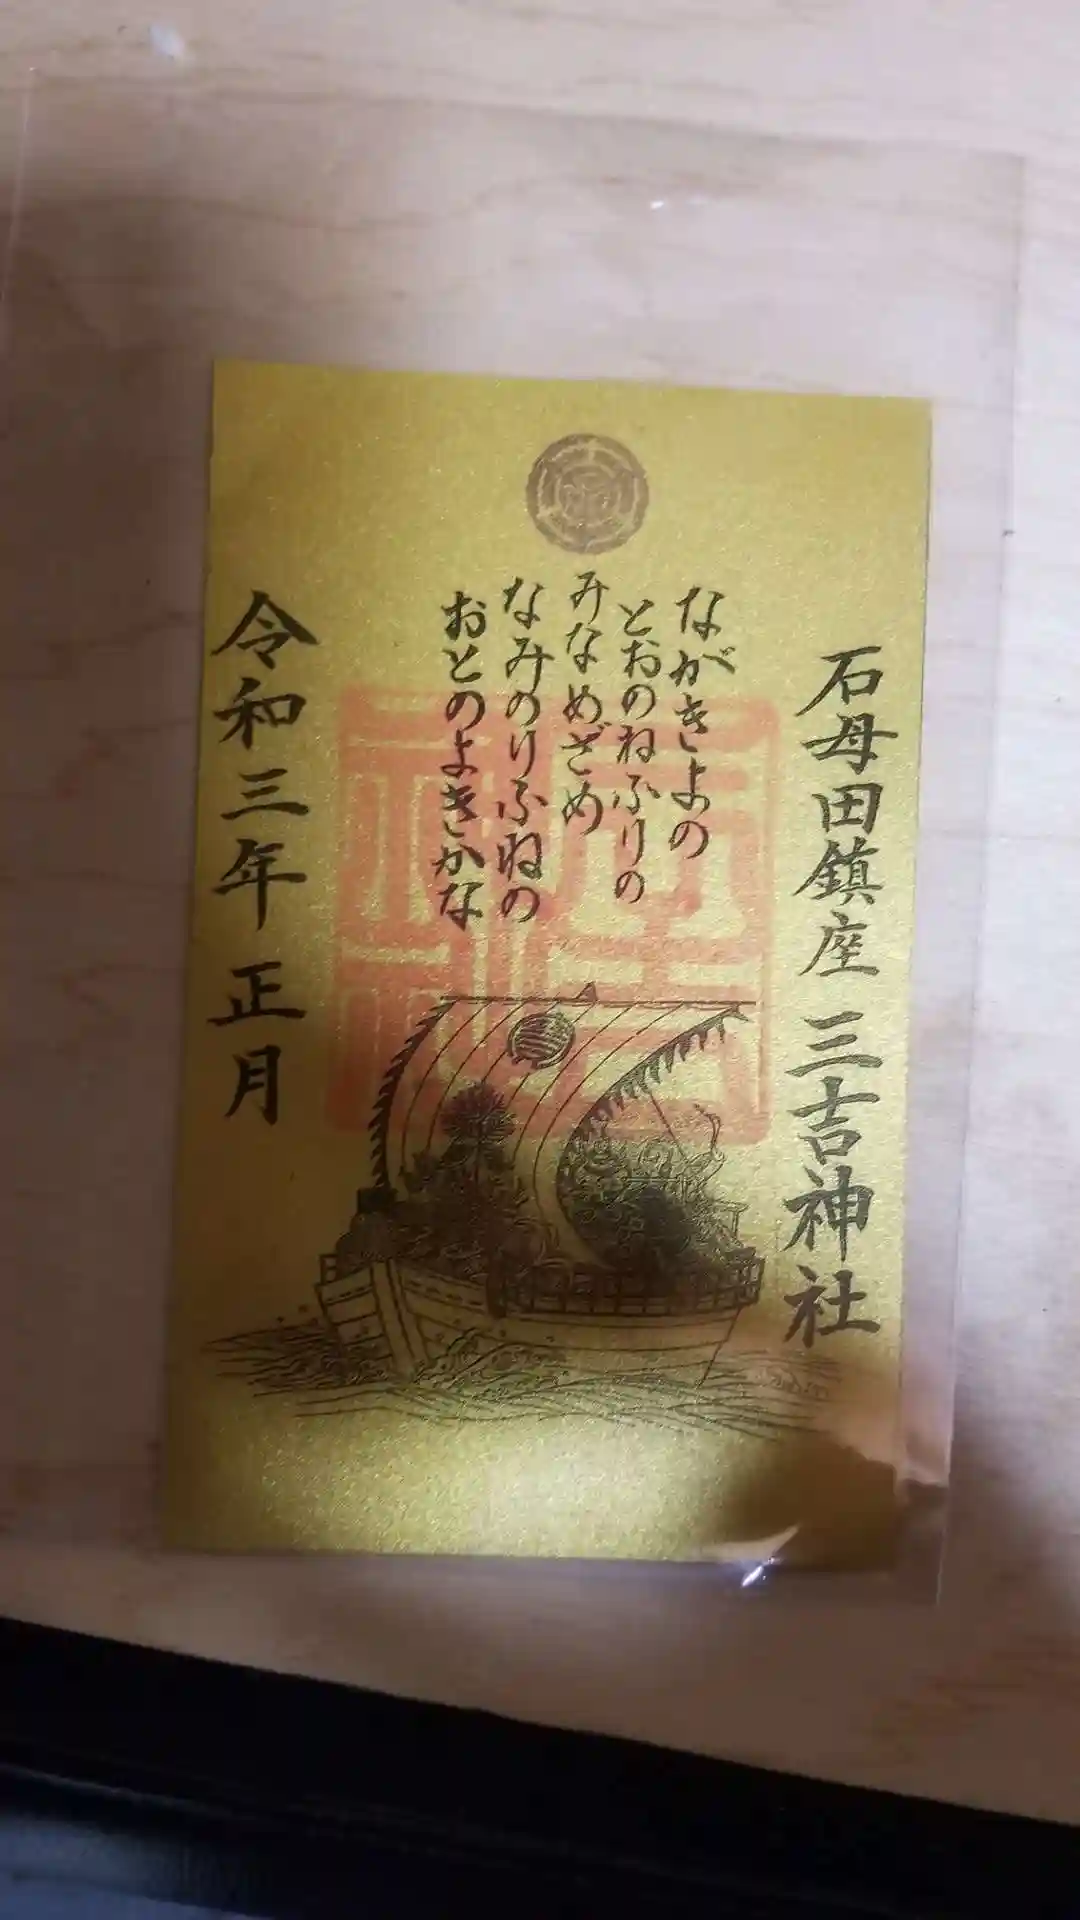 石母田鎮座 三吉神社
ながきよの
とおのねふりの
みなめざめ
なみのりふねの
おとのよきかな
令和三年 正月